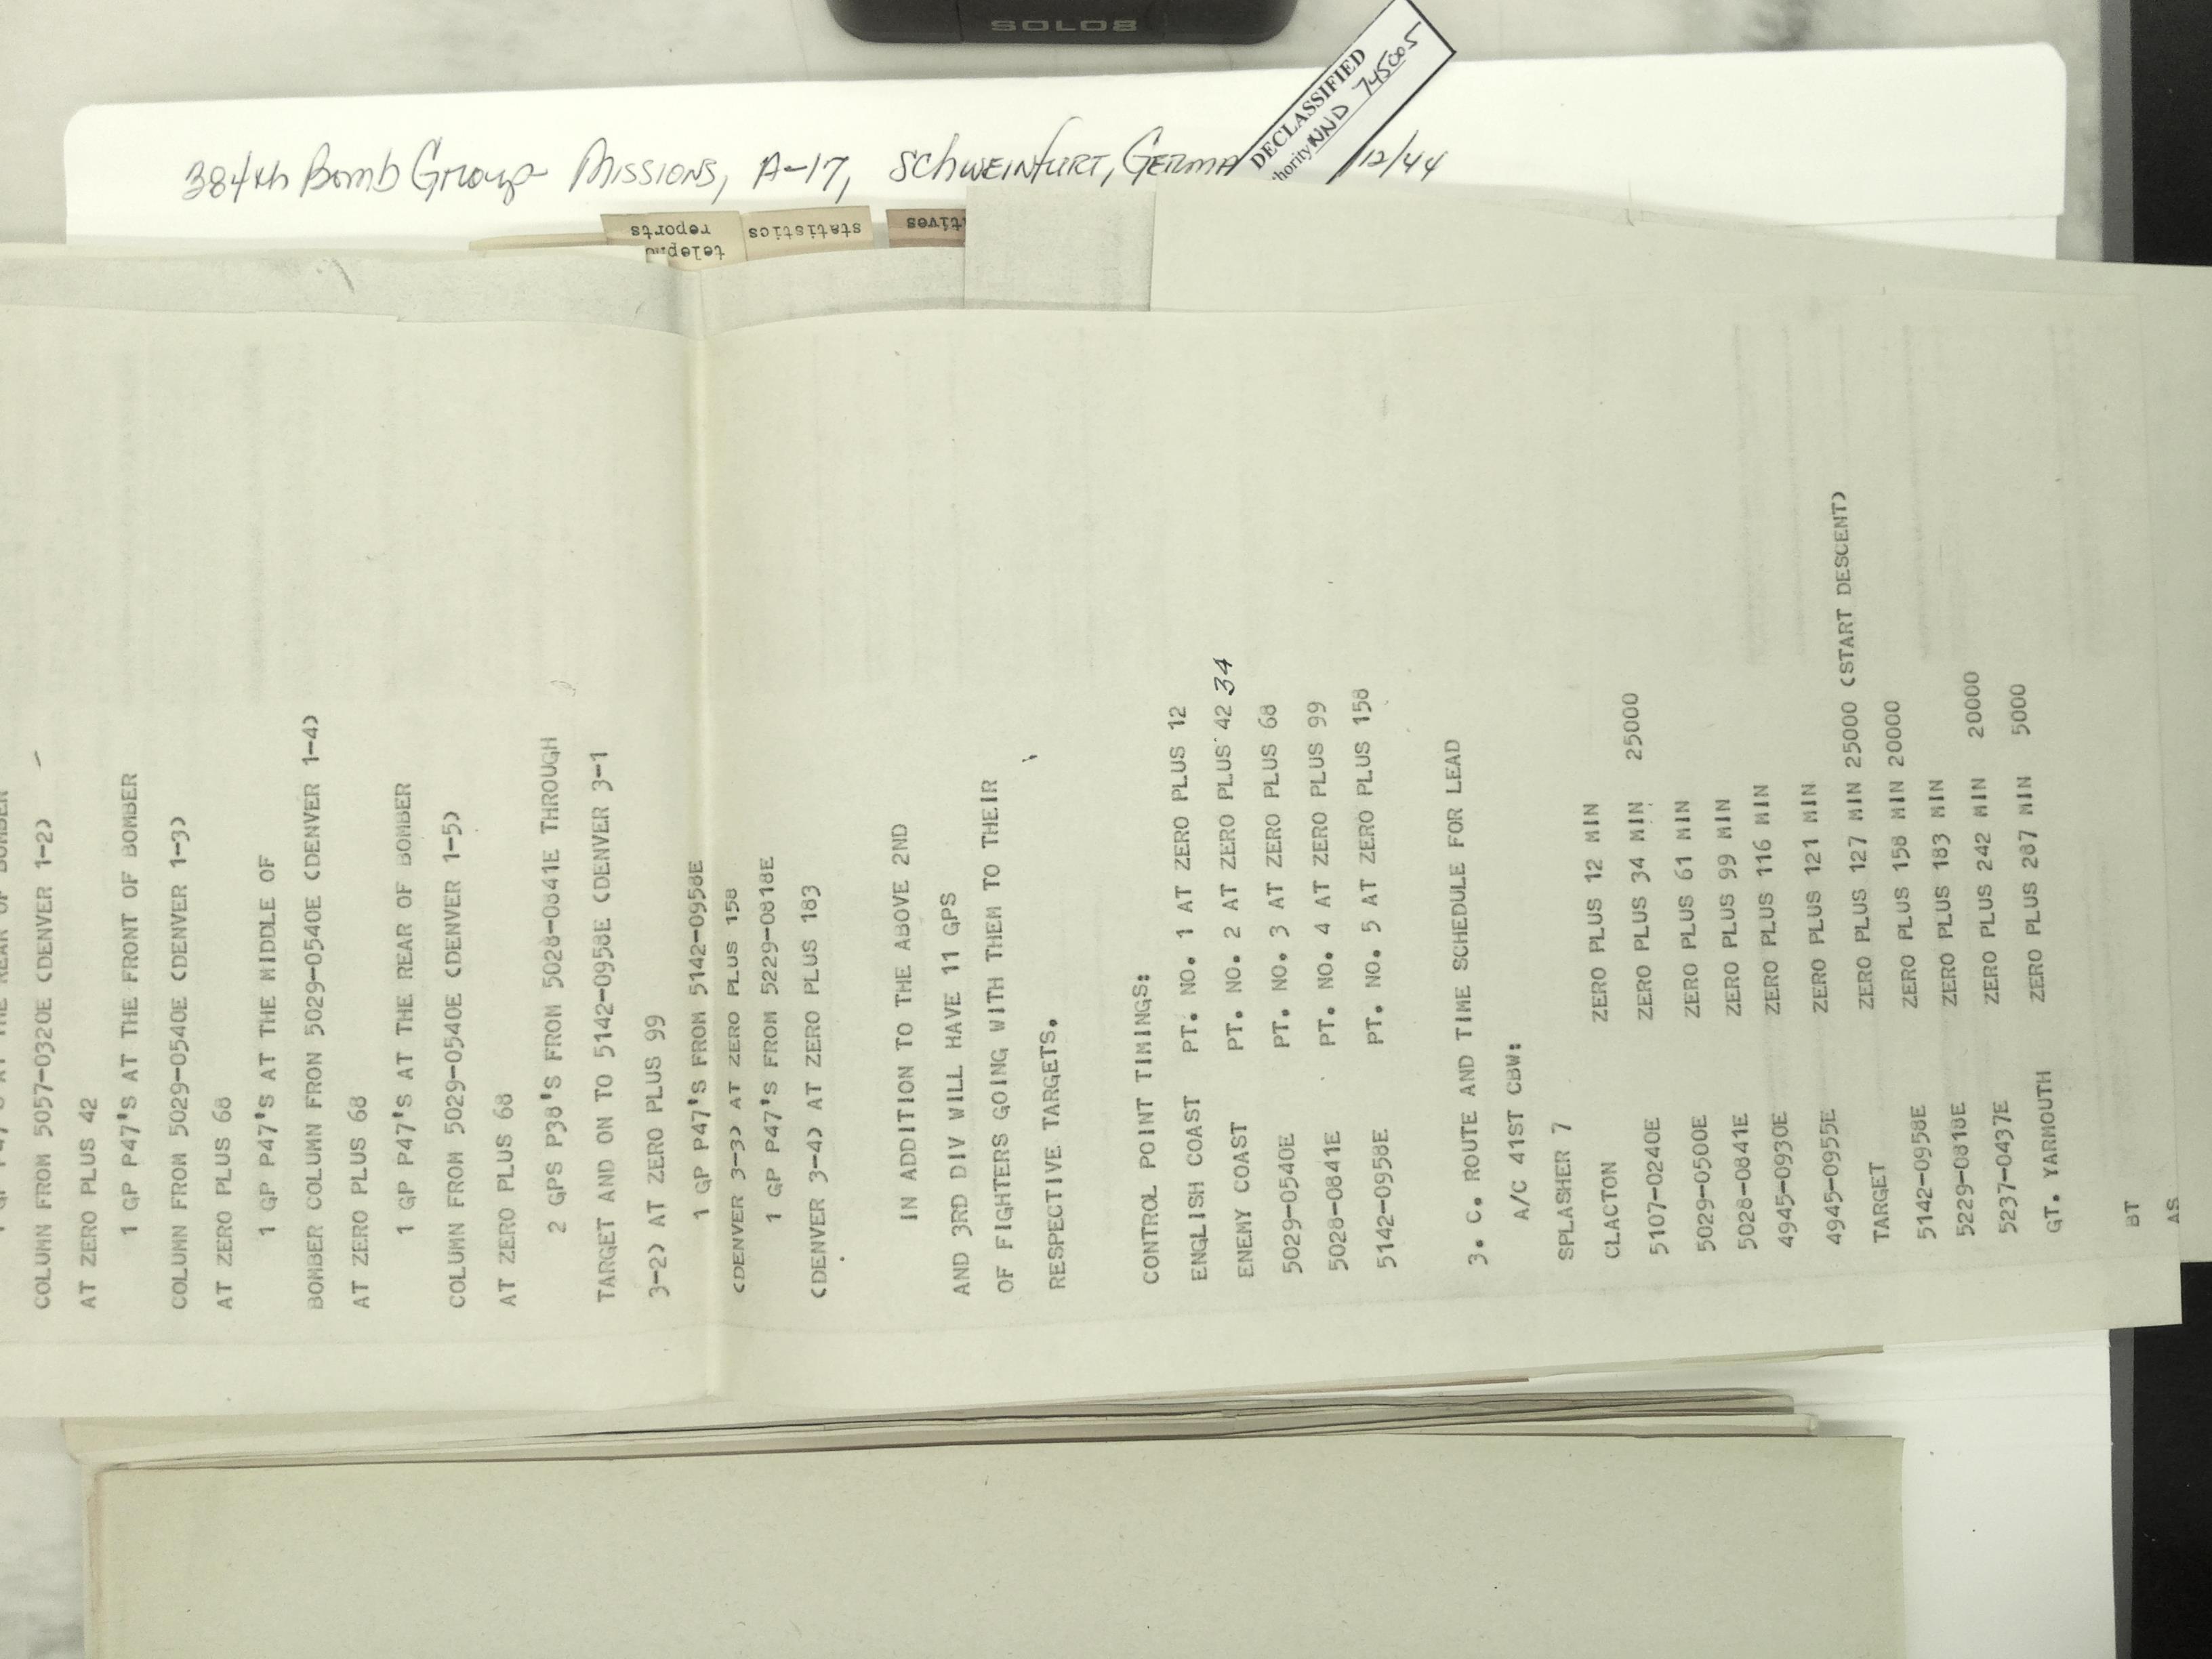 SOLO8
DECLASSIFIED
hority NND 745005
384th Bomb Group Missions, A-17, Schweinfurt, Germa /12/44
telepho
reports
statistics
COLUMN FROM 5057-0320E (DENVER 1-2)
AT ZERO PLUS 42
1 GP P47'S AT THE FRONT OF BOMBER
COLUMN FROM 5029-0540E (DENVER 1-3)
AT ZERO PLUS 68
1 GP P47'S AT THE MIDDLE OF
BOMBER COLUMN FRON 5029-0540E (DENVER 1-4)
AT ZERO PLUS 68
1 GP P47'S AT THE REAR OF BOMBER
COLUMN FROM 5029-0540E (DENVER 1-5)
AT ZERO PLUS 68
2 GPS P38'S FROM 5028-0841E THROUGH
TARGET AND ON TO 5142-0958E (DENVER 3-1
3-2) AT ZERO PLUS 99
1 GP P47'S FROM 5142-0958E
(DENVER 3-3) AT ZERO PLUS 158
1 GP P47'S FROM 5229-0818E
(DENVER 3-4) AT ZERO PLUS 183
IN ADDITION TO THE ABOVE 2ND
AND 3RD DIV WILL HAVE 11 GPS
OF FIGHTERS GOING WITH THEM TO THEIR
RESPECTIVE TARGETS.
CONTROL POINT TIMINGS:
ENGLISH COAST PT. NO. 1 AT ZERO PLUS 12
ENEMY COAST PT. NO. 2 AT ZERO PLUS 42 34
5029-0540E PT. NO. 3 AT ZERO PLUS 68
5028-0841E PT. NO. 4 AT ZERO PLUS 99
5142-0958E PT. NO. 5 AT ZERO PLUS 158
3. C. ROUTE AND TIME SCHEDULE FOR LEAD
A/C 41ST CBW:
SPLASHER 7
CLACTON ZERO PLUS 12 MIN
5107-0240E ZERO PLUS 34 MIN 25000
5029-0500E ZERO PLUS 61 MIN
5028-0841E ZERO PLUS 99 MIN
4945-0930E ZERO PLUS 116 MIN
4945-0955E ZERO PLUS 121 MIN
TARGET ZERO PLUS 127 MIN 25000 (START DESCENT)
5142-0958E ZERO PLUS 158 MIN 20000
5229-0818E ZERO PLUS 183 MIN
5237-0437E ZERO PLUS 242 MIN 20000
GT. YARMOUTH ZERO PLUS 287 MIN 5000
BT
AS